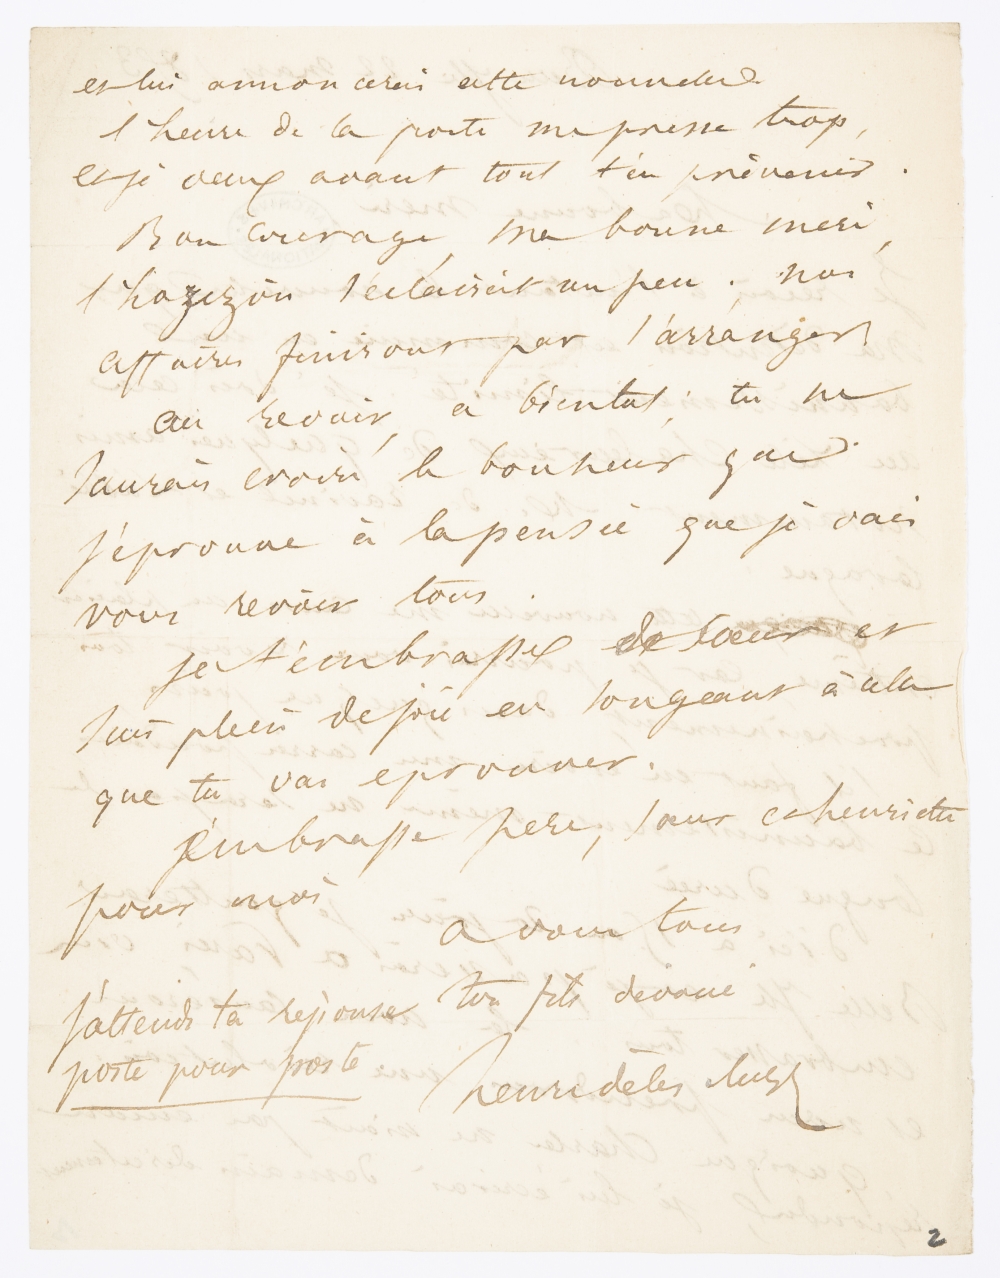 et lui annoncerai cette nouvelle
l'heure de la poste me presse trop,
et je veux avant tout t'en prévenir.
Bon courage, ma bonne mère,
l'horizon s'éclaircit un peu. nos
affaires finiront par s'arranger
au revoir, a bientot, tu ne
saurais croire le bonheur que
j'éprouve à la pensée que je vais
vous revoir tous.
je t'embrasse de coeur et
suis plein de joie en songeant à cela
que tu vas eprouver.
j'embrasse pere, soeur et henriette
pour moi
a vous tous
ton fils dévoué
j'attends ta réponse
poste pour poste
henri
2